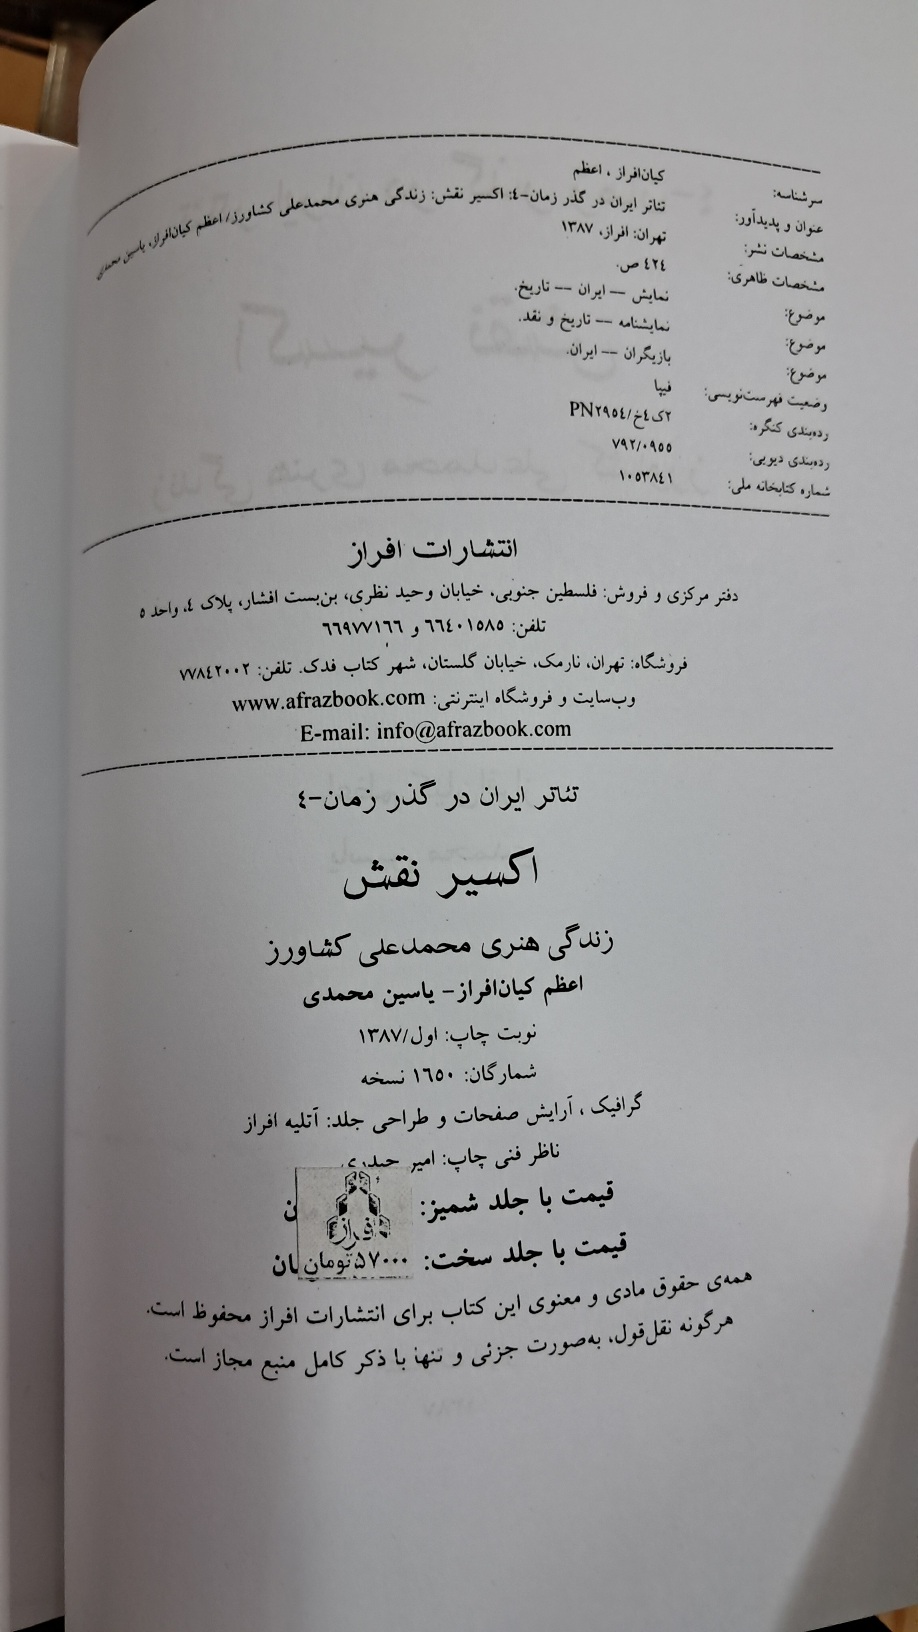 سرشناسه: کیان‌افراز ، اعظم
عنوان و پدیدآور: تئاتر ایران در گذر زمان-٤: اکسیر نقش: زندگی هنری محمدعلی کشاورز/ اعظم کیان‌افراز، یاسین محمدی
مشخصات نشر: تهران: افراز، ١٣٨٧
مشخصات ظاهری: ٤٢٤ ص.
موضوع: نمایش — ایران — تاریخ.
موضوع: نمایشنامه — تاریخ و نقد.
موضوع: بازیگران — ایران.
وضعیت فهرست‌نویسی: فیپا
رده‌بندی کنگره: PN٢٩٥٤/٢ک٤خ
رده‌بندی دیویی: ٧٩٢/٠٩٥٥
شماره کتابخانه ملی: ١٠٥٣٨٤١
انتشارات افراز
دفتر مرکزی و فروش: فلسطین جنوبی، خیابان وحید نظری، بن‌بست افشار، پلاک ٤، واحد ٥
تلفن: ٦٦٤٠١٥٨٥ و ٦٦٩٧٧١٦٦
فروشگاه: تهران، نارمک، خیابان گلستان، شهر کتاب فدک. تلفن: ٧٧٨٤٢٠٠٢
وب‌سایت و فروشگاه اینترنتی: www.afrazbook.com
E-mail: info@afrazbook.com
تئاتر ایران در گذر زمان-٤
اکسیر نقش
زندگی هنری محمدعلی کشاورز
اعظم کیان‌افراز- یاسین محمدی
نوبت چاپ: اول/١٣٨٧
شمارگان: ١٦٥٠ نسخه
گرافیک ، آرایش صفحات و طراحی جلد: آتلیه افراز
ناظر فنی چاپ: امیر حیدری
قیمت با جلد شمیز:
افراز
قیمت با جلد سخت: ٥٧٠٠٠ تومان
همه‌ی حقوق مادی و معنوی این کتاب برای انتشارات افراز محفوظ است.
هرگونه نقل‌قول، به‌صورت جزئی و تنها با ذکر کامل منبع مجاز است.